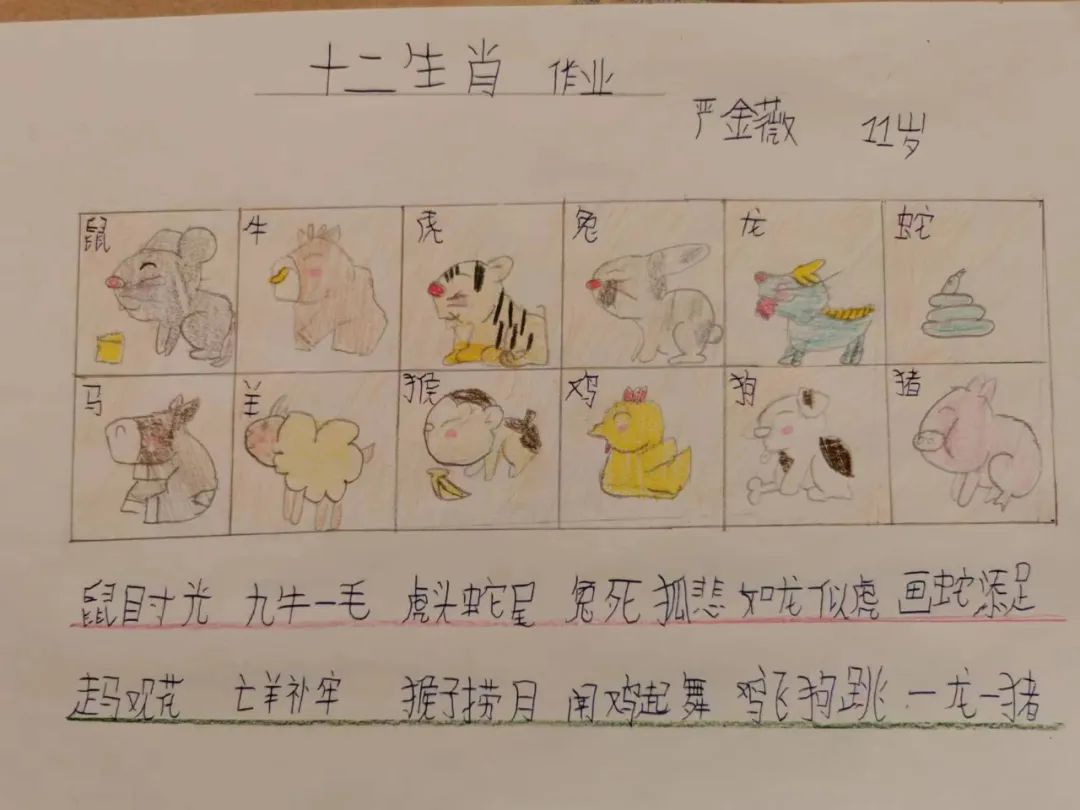 十二生肖 作业
严金薇 11岁
鼠 牛 虎 兔 龙 蛇
马 羊 猴 鸡 狗 猪
鼠目寸光 九牛一毛 虎头蛇尾 兔死狐悲 如龙似虎 画蛇添足
走马观花 亡羊补牢 猴子捞月 闻鸡起舞 鸡飞狗跳 一龙一猪